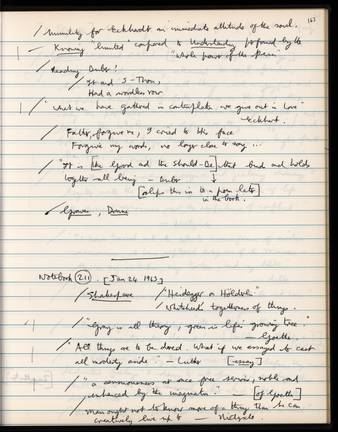 163
/ humility for Eckhardt an immediate attitude of the soul.
Knowing limited compared to Understanding, performed by the
"whole power of the brain"
/ Reading Buber!
/ It and I-Thou,
Had a wordless
/ "What we have gathered in contemplation we give out in love"
Eckhart.
/ Father, forgive me, I cried to His face
Forgive my words, we
/ "It is [the Good and the Should-Be] that bind and holds
together all being – Buber
[ this in to a poem later]
in the book.
/ Graves, Donne
Notebook (211) [Jan 24 1963]
/ Shakespeare / "Heidegger on Hölderlin"
/ Whitehead's togetherness of things.
/ "Gray is all theory, green is life's growing tree"
– Goethe.
/ "All things are to be dared. What if we essayed to cast
all modesty aside." – Luther [essay]
/ "a consciousness at once free, serene, noble and
enhanced by the imagination" – [of Goethe]
/ Man ought not to know more of a thing than he can
creatively live up to – Nietzsche